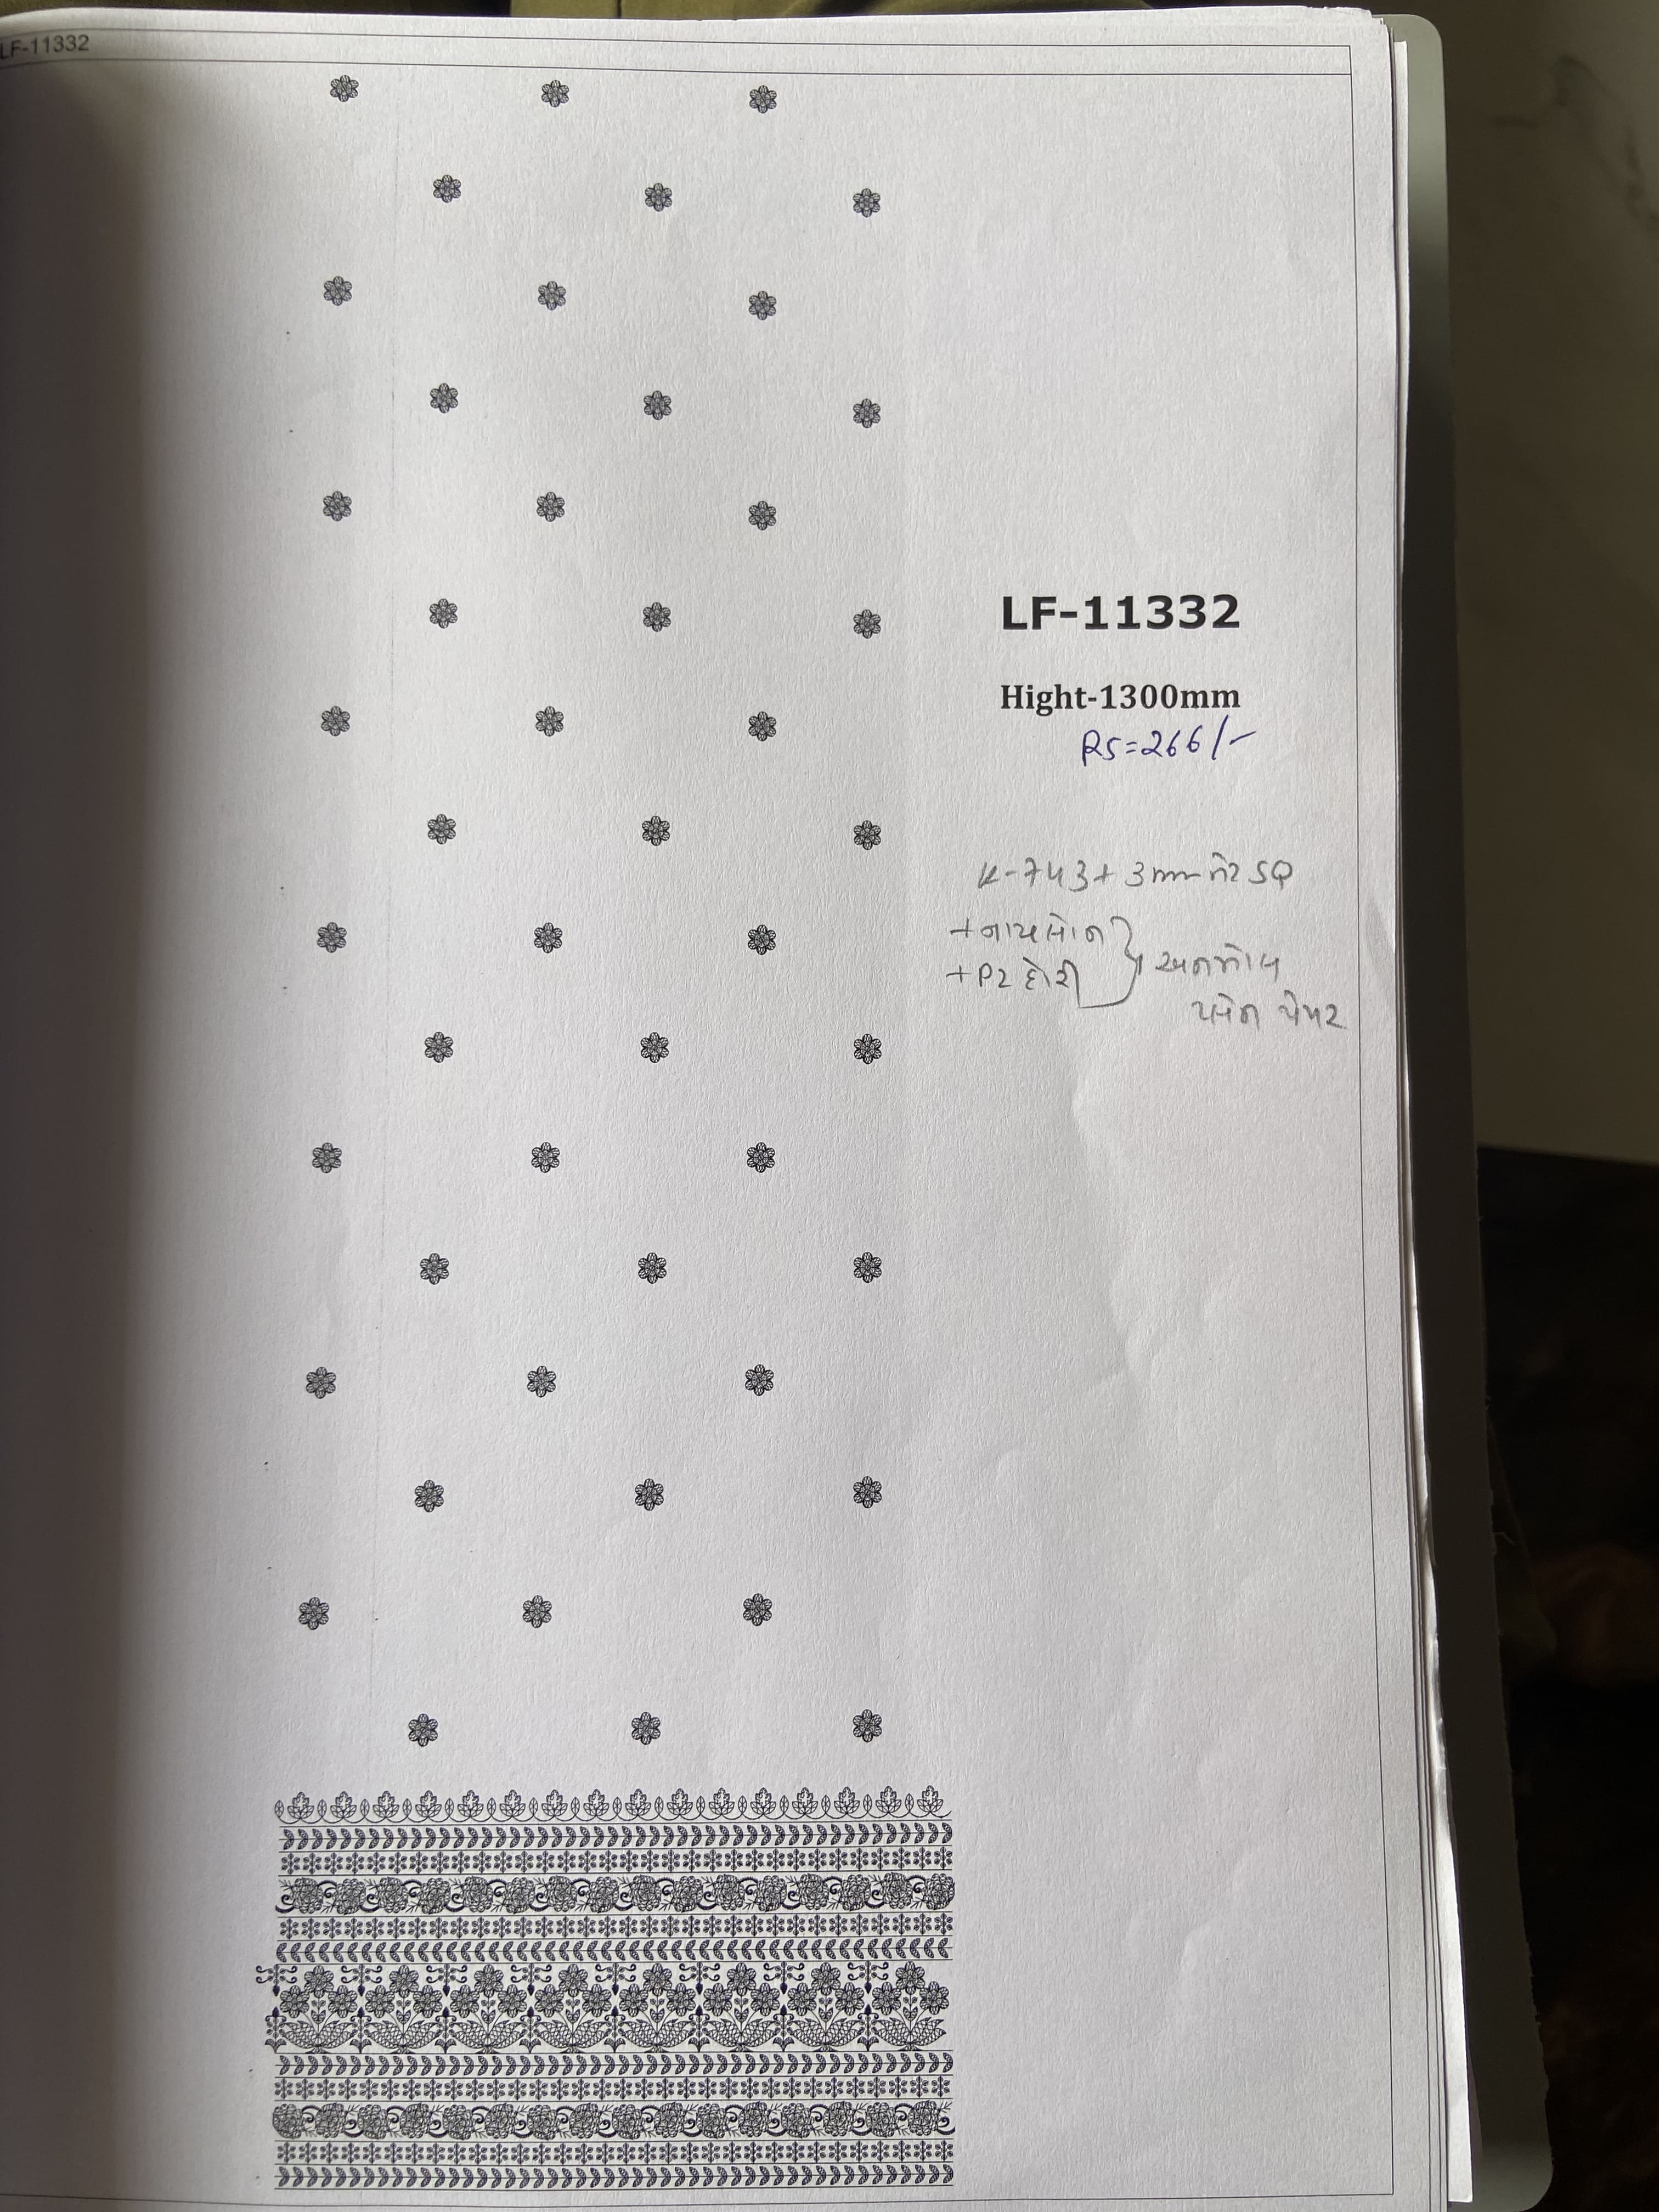 LF-11332
LF-11332
Hight-1300mm
RS=266/-
K-743+3mm નેટ SQ
+નાયલોન
+P2 દોરી
અનમોલ
પ્લેન પેપર